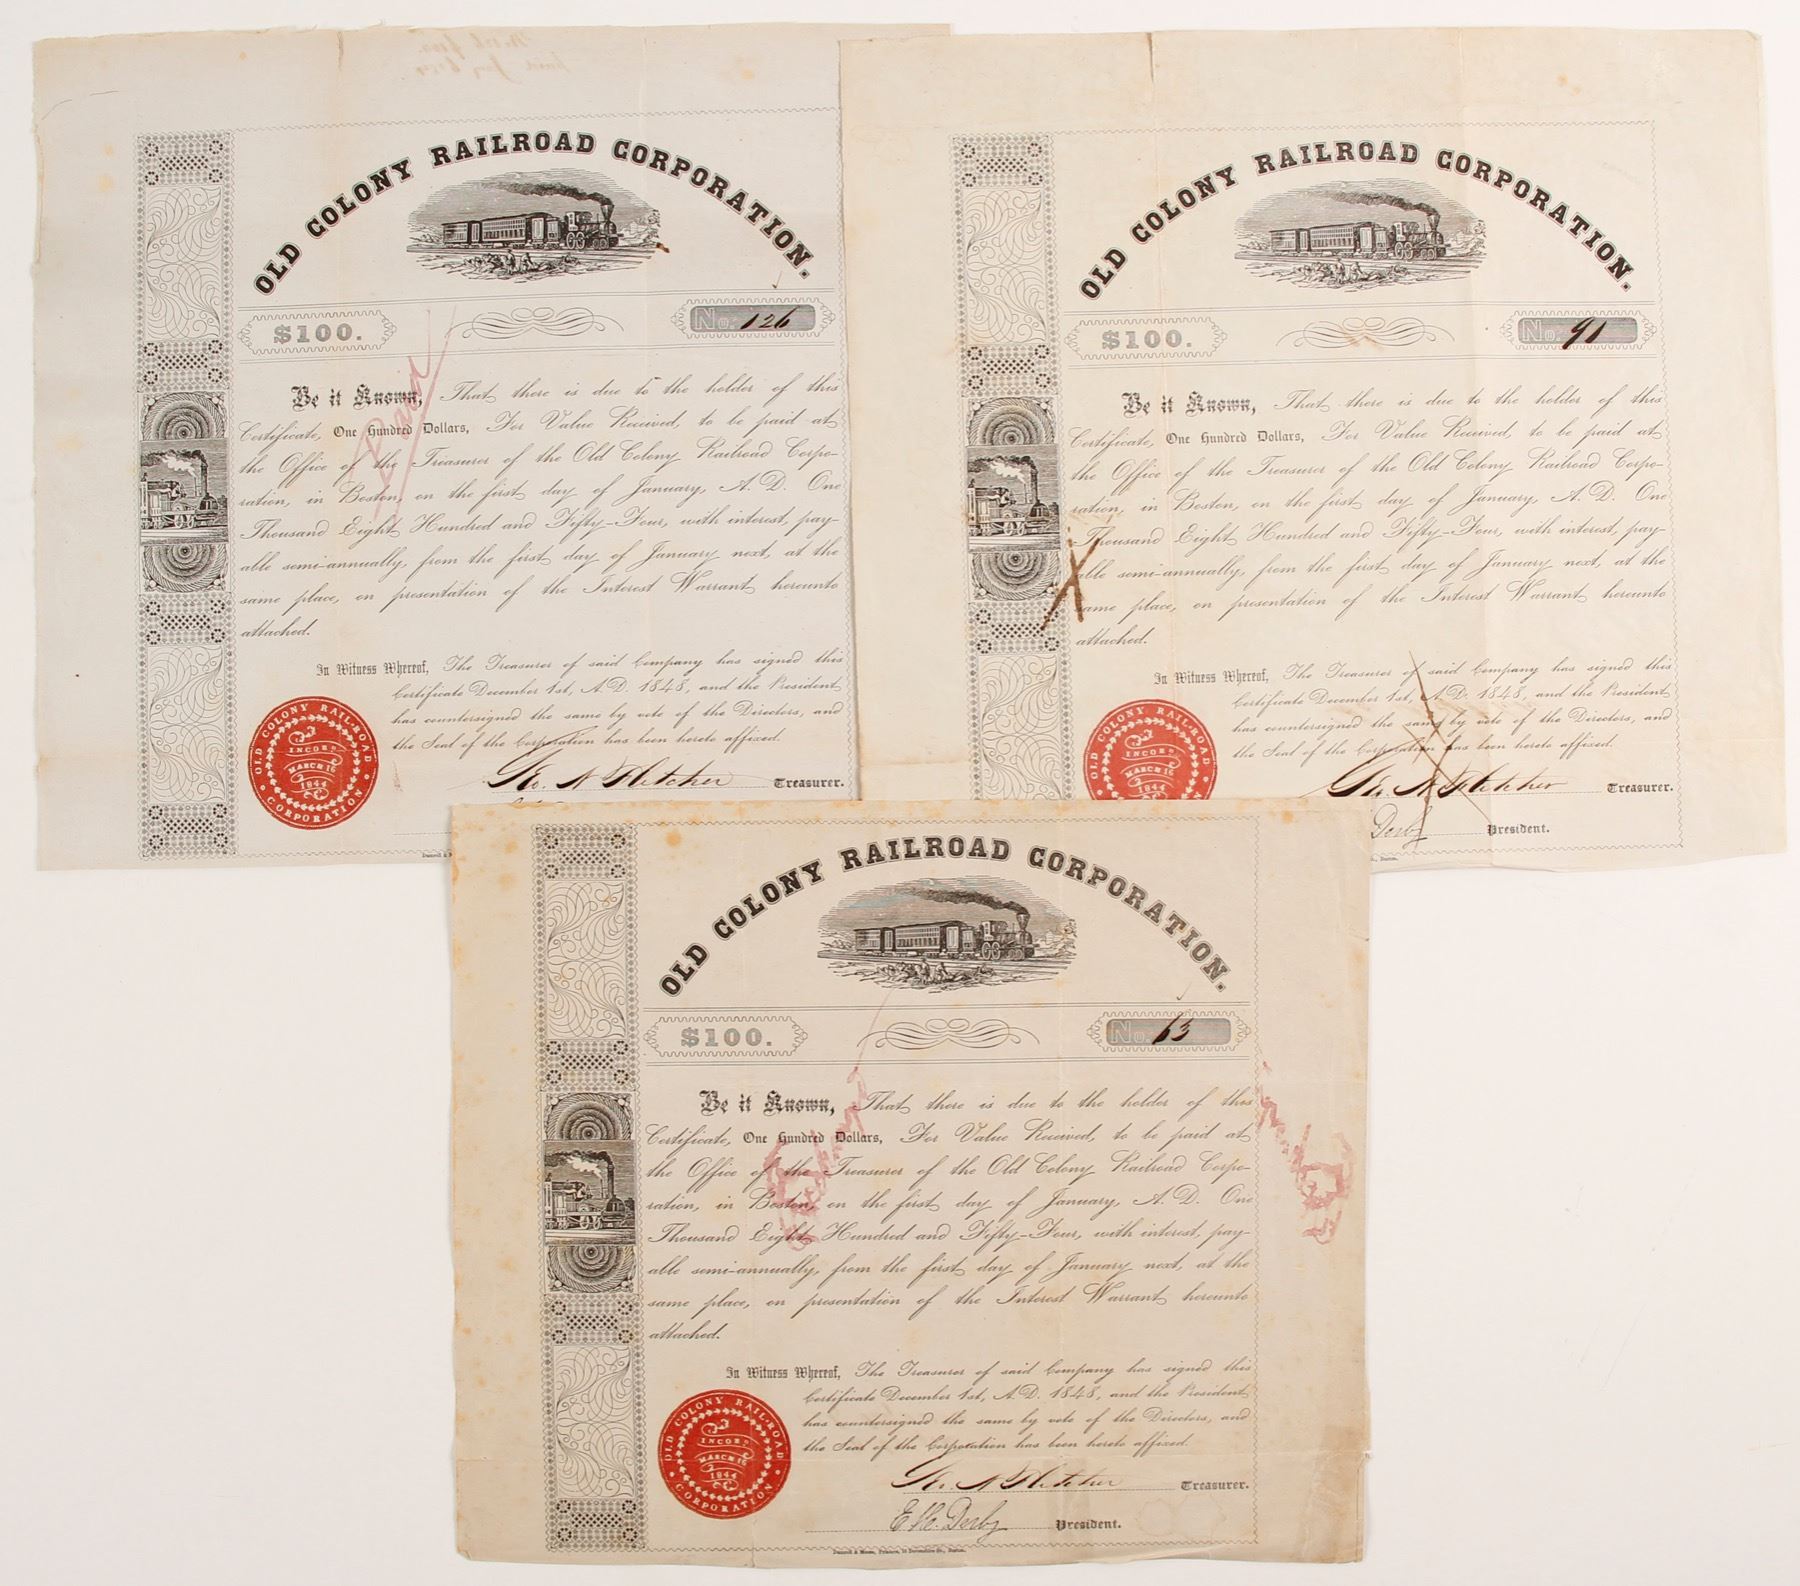 OLD COLONY RAILROAD CORPORATION.
$100.
No. 126
Paid
Be it Known, That there is due to the holder of this
Certificate, One Hundred Dollars, For Value Received, to be paid at
the Office of the Treasurer of the Old Colony Railroad Corpo-
ration, in Boston, on the first day of January, A. D. One
Thousand Eight Hundred and Fifty-Four, with interest, pay-
able semi-annually, from the first day of January next, at the
same place, on presentation of the Interest Warrant hereunto
attached.
In Witness Whereof, The Treasurer of said Company has signed this
Certificate December 1st, A. D. 1848, and the President
has countersigned the same by vote of the Directors, and
the Seal of the Corporation has been hereto affixed.
OLD COLONY RAIL-ROAD
INCORD
MARCH 16
1844
CORPORATION
Fletcher Treasurer.
OLD COLONY RAILROAD CORPORATION.
$100.
No. 91
Be it Known, That there is due to the holder of this
Certificate, One Hundred Dollars, For Value Received, to be paid at
the Office of the Treasurer of the Old Colony Railroad Corpo-
ration, in Boston, on the first day of January, A. D. One
Thousand Eight Hundred and Fifty-Four, with interest, pay-
able semi-annually, from the first day of January next, at the
same place, on presentation of the Interest Warrant hereunto
attached.
In Witness Whereof, The Treasurer of said Company has signed this
Certificate December 1st, A. D. 1848, and the President
has countersigned the same by vote of the Directors, and
the Seal of the Corporation has been hereto affixed.
OLD COLONY RAIL-ROAD
INCORD
MARCH 16
1844
Fletcher Treasurer.
Derby President.
OLD COLONY RAILROAD CORPORATION.
$100.
No. 63
Be it Known, That there is due to the holder of this
Certificate, One Hundred Dollars, For Value Received, to be paid at
the Office of the Treasurer of the Old Colony Railroad Corpo-
ration, in Boston, on the first day of January, A. D. One
Thousand Eight Hundred and Fifty-Four, with interest, pay-
able semi-annually, from the first day of January next, at the
same place, on presentation of the Interest Warrant hereunto
attached.
In Witness Whereof, The Treasurer of said Company has signed this
Certificate December 1st, A. D. 1848, and the President
has countersigned the same by vote of the Directors, and
the Seal of the Corporation has been hereto affixed.
OLD COLONY RAIL-ROAD
INCORD
MARCH 16
1844
CORPORATION
Fletcher Treasurer.
E. H. Derby President.